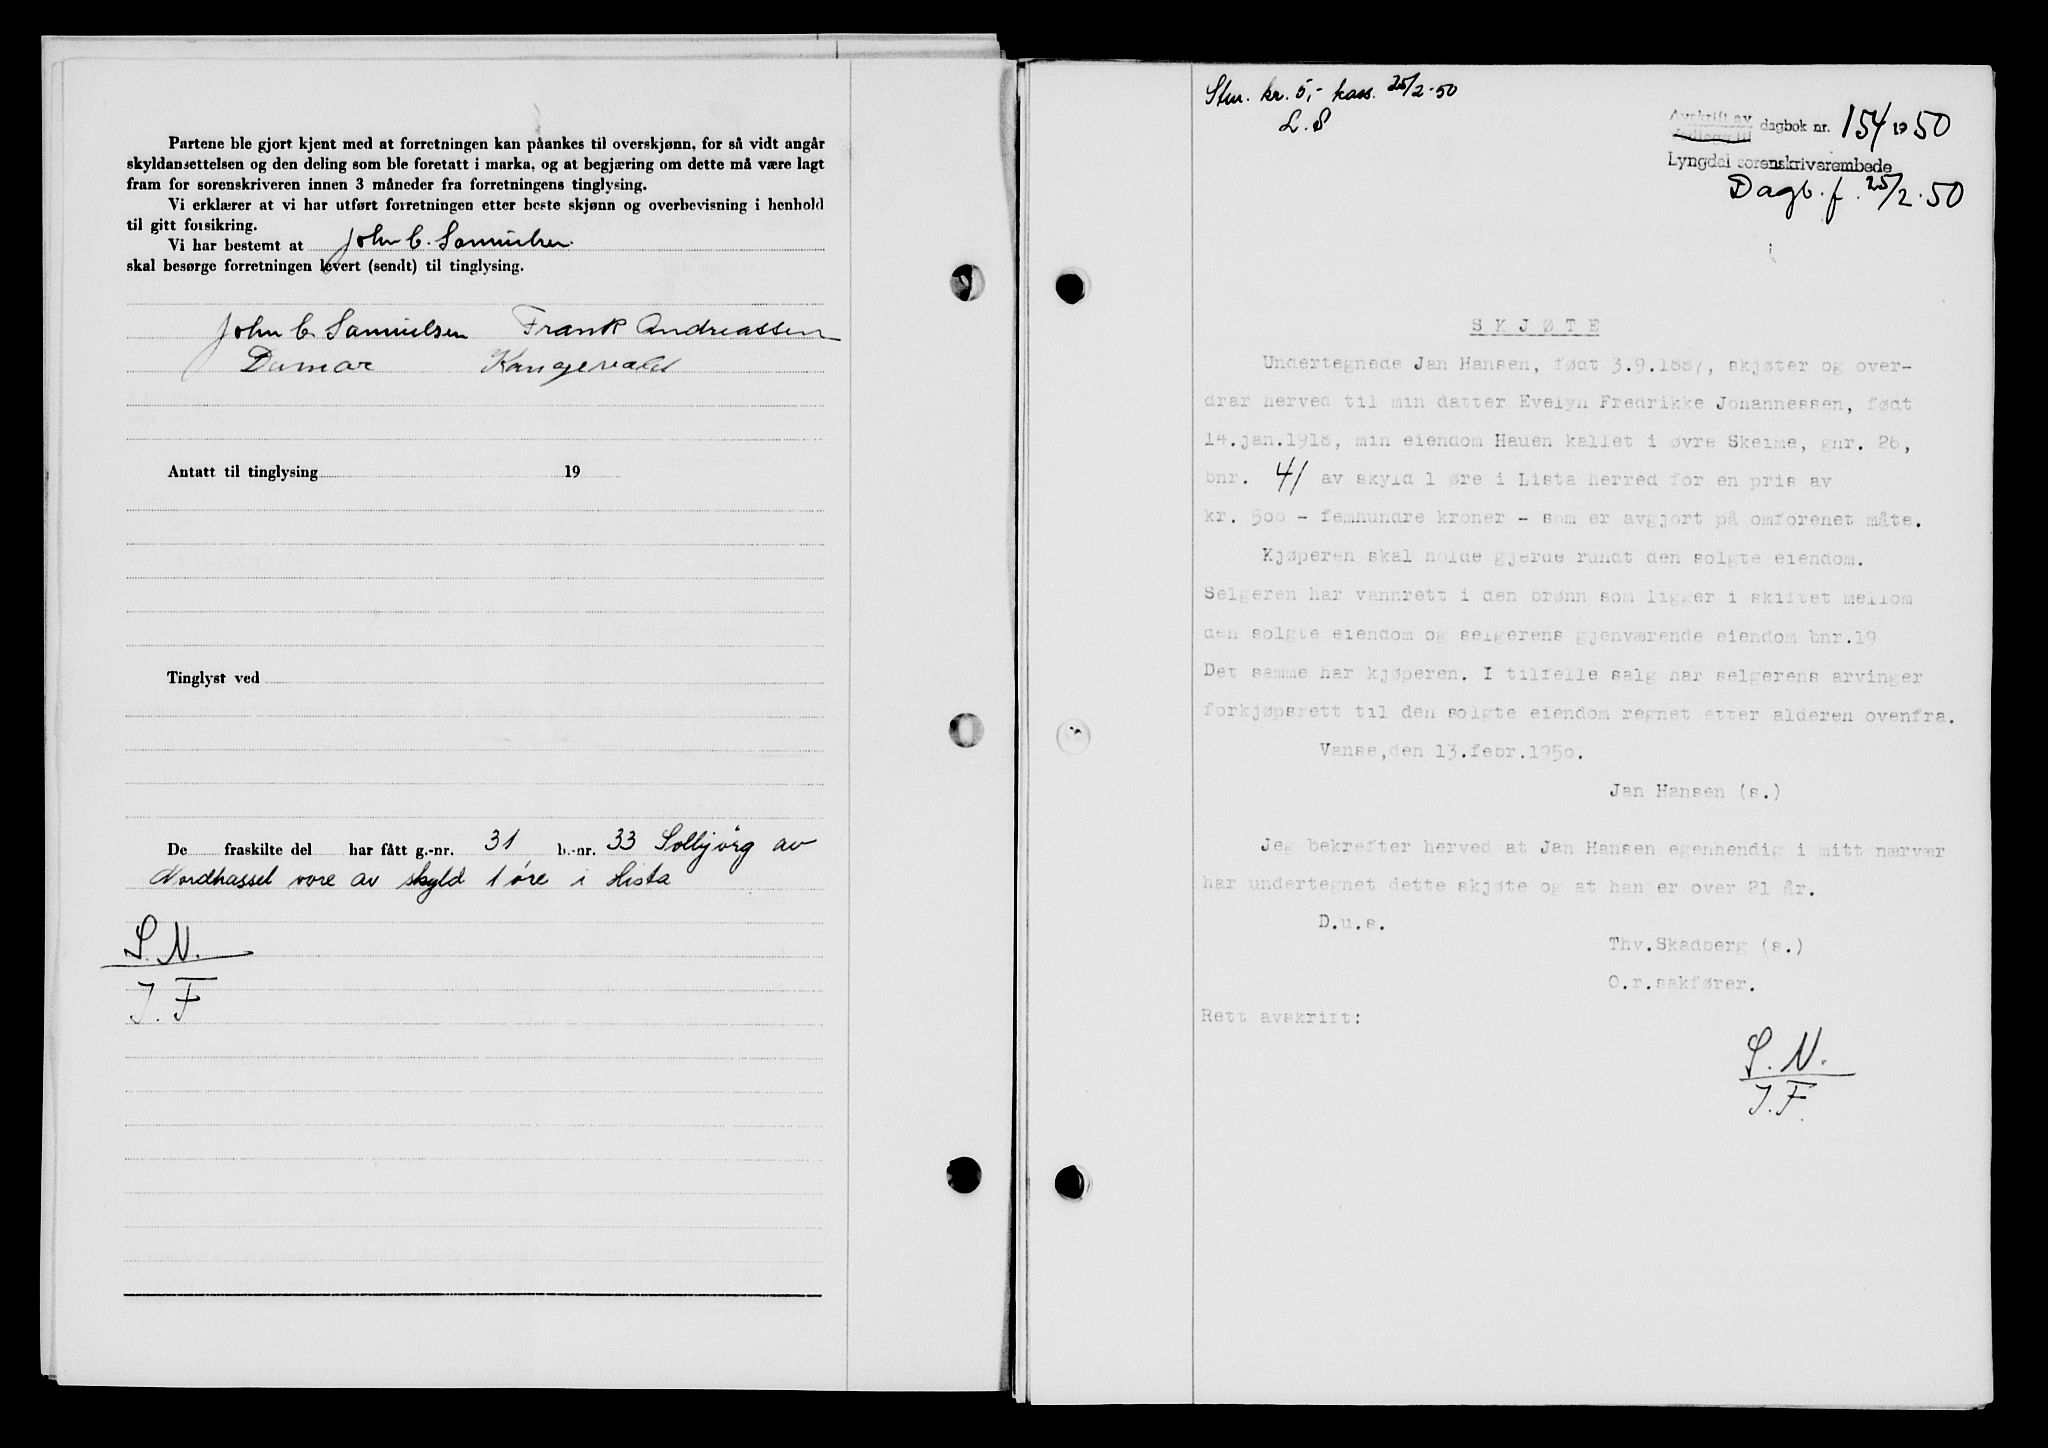 Partene ble gjort kjent med at forretningen kan påankes til overskjønn, for så vidt angår
skyldansettelsen og den deling som ble foretatt i marka, og at begjæring om dette må være lagt
fram for sorenskriveren innen 3 måneder fra forretningens tinglysing.
Vi erklærer at vi har utført forretningen etter beste skjønn og overbevisning i henhold
til gitt forsikring.
Vi har bestemt at John C. Samuelsen
skal besørge forretningen levert (sendt) til tinglysing.
John C. Samuelsen Frank Andreassen
Antatt til tinglysing 19
Tinglyst ved
De fraskilte del har fått g.-nr. 31 b.-nr. 33 Solbjörg av
Nordhassel vore av skyld 1 øre i Lista
S. N.
J. F
Stm. kr. 5,- kass. 25/2-50
L. S
Avskrift av
Vedlegg til dagbok nr. 154 19 50
Lyngdal sorenskriverembede
Dagb. f. 25/2.50
SKJØTE
Undertegnede Jan Hansen, født 3.9.1887, skjøter og over-
drar herved til min datter Evelyn Fredrikke Johannessen, født
14.jan.1918, min eiendom Hauen kallet i øvre Skeime, gnr. 26,
bnr. 41 av skyld 1 øre i Lista herred for en pris av
kr. 500 - femhundre kroner - som er avgjort på omforenet måte.
Kjøperen skal holde gjerde rundt den solgte eiendom.
Selgeren har vannrett i den brønn som ligger i skiftet mellom
den solgte eiendom og selgerens gjenværende eiendom bnr.19
Det samme har kjøperen. I tilfelle salg har selgerens arvinger
forkjøpsrett til den solgte eiendom regnet etter alderen ovenfra.
Vanse,den 13.febr.1950.
Jan Hansen (s.)
Jeg bekrefter herved at Jan Hansen egenhendig i mitt nærvær
har undertegnet dette skjøte og at han er over 21 år.
D.u.s.
Thv.Skadberg (s.)
O.r.sakfører.
Rett avskrift:
S. N.
J. F.